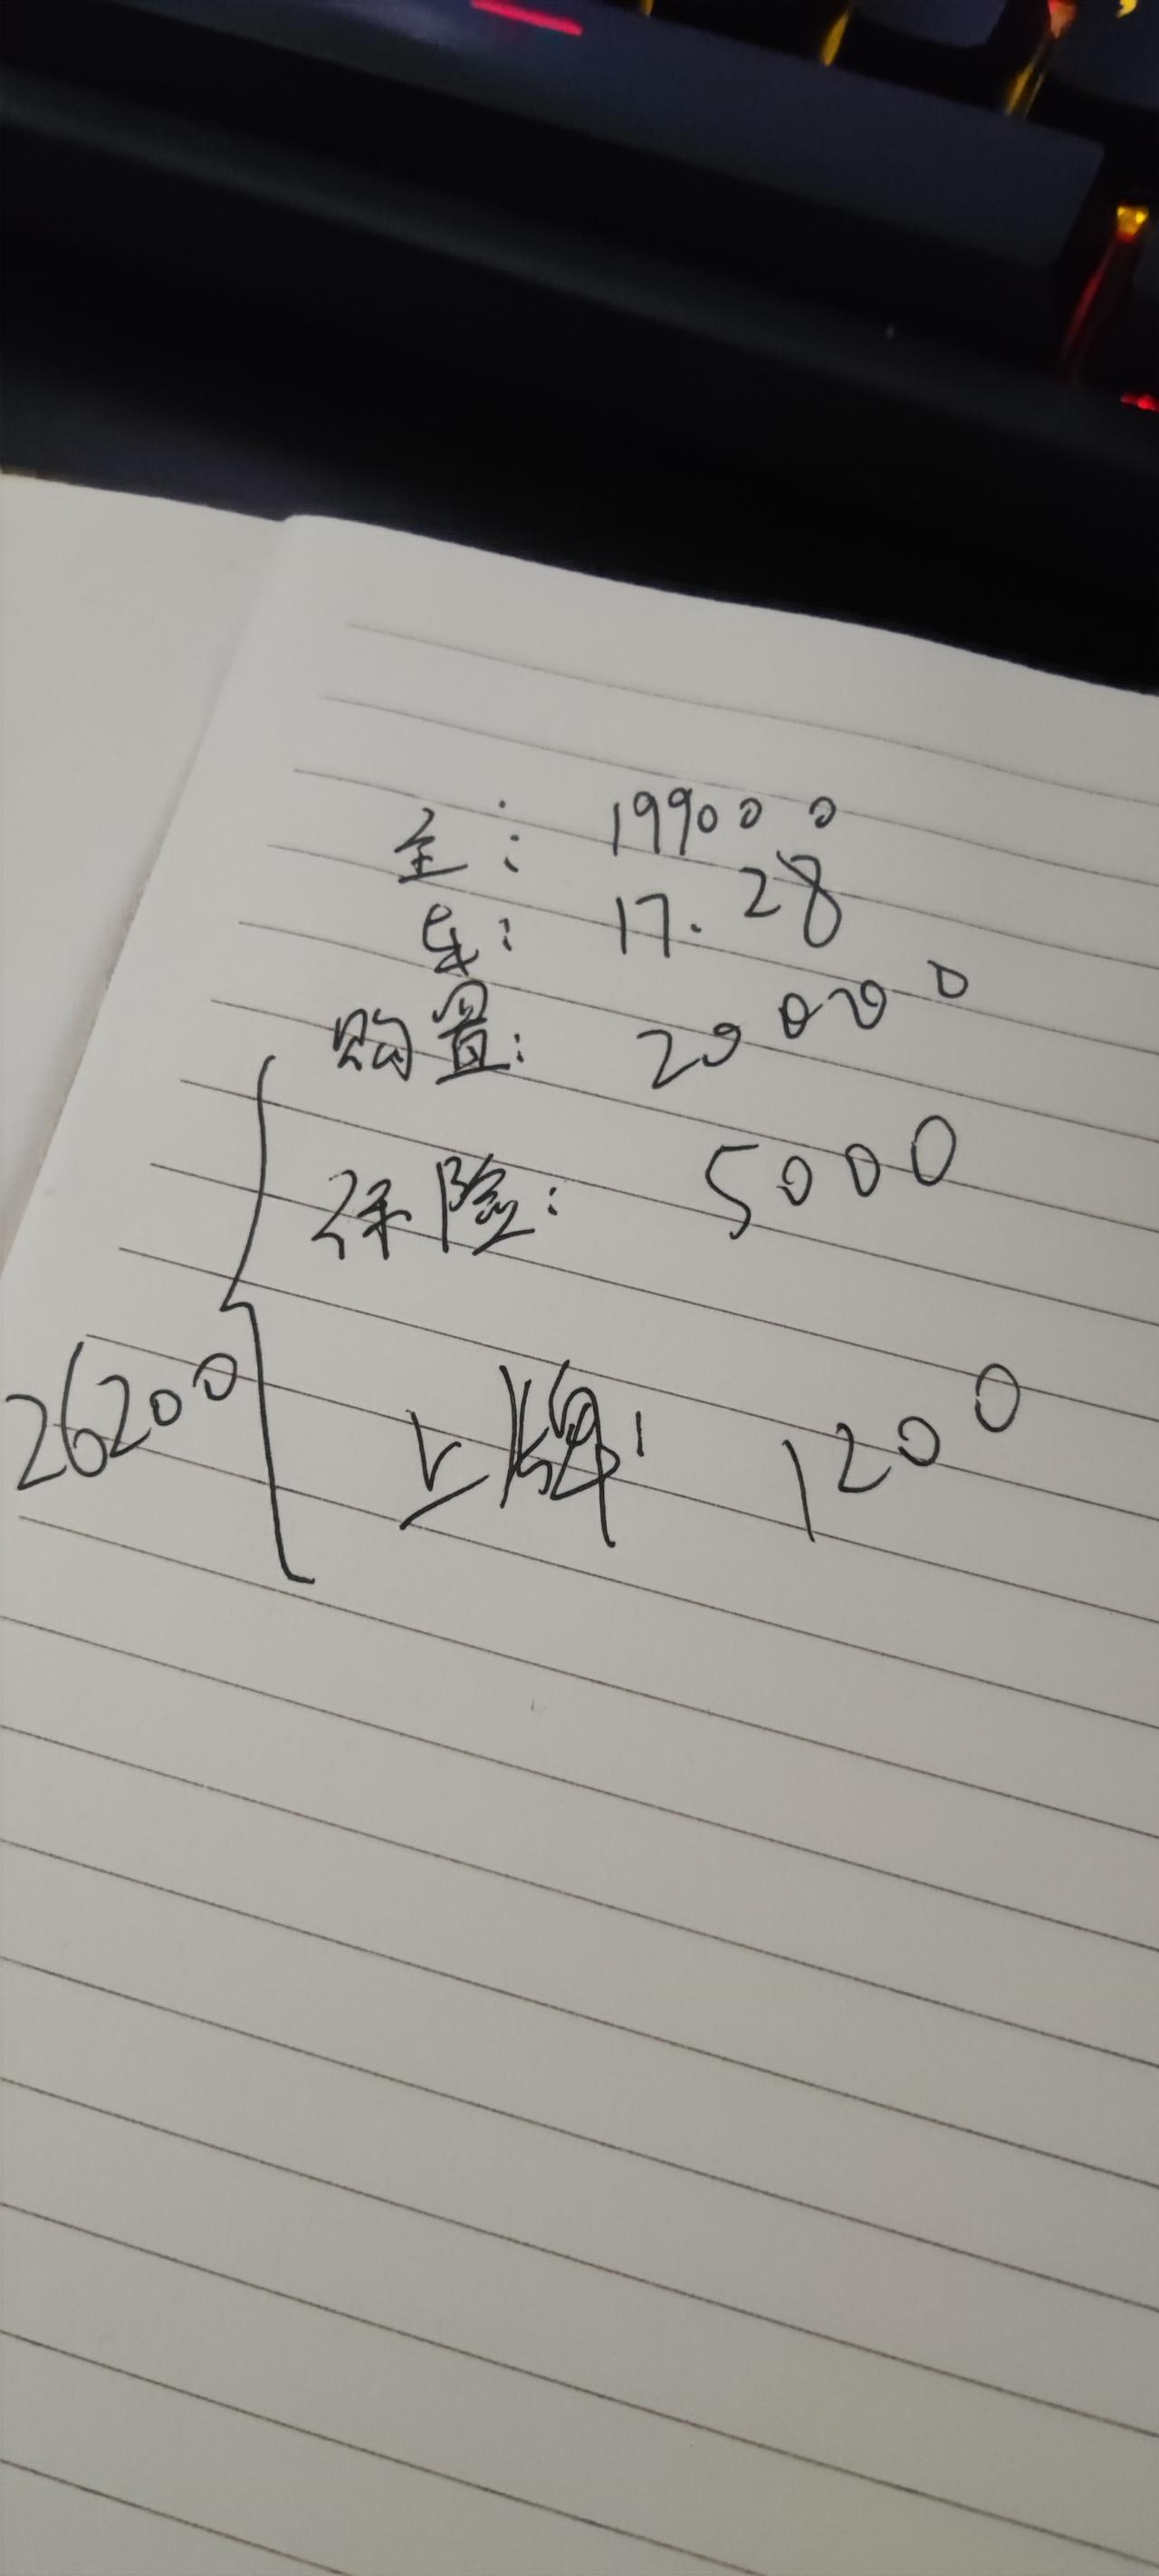 全: 199000
车: 17.28
购置: 20000
保险: 5000
上牌: 1200
26200